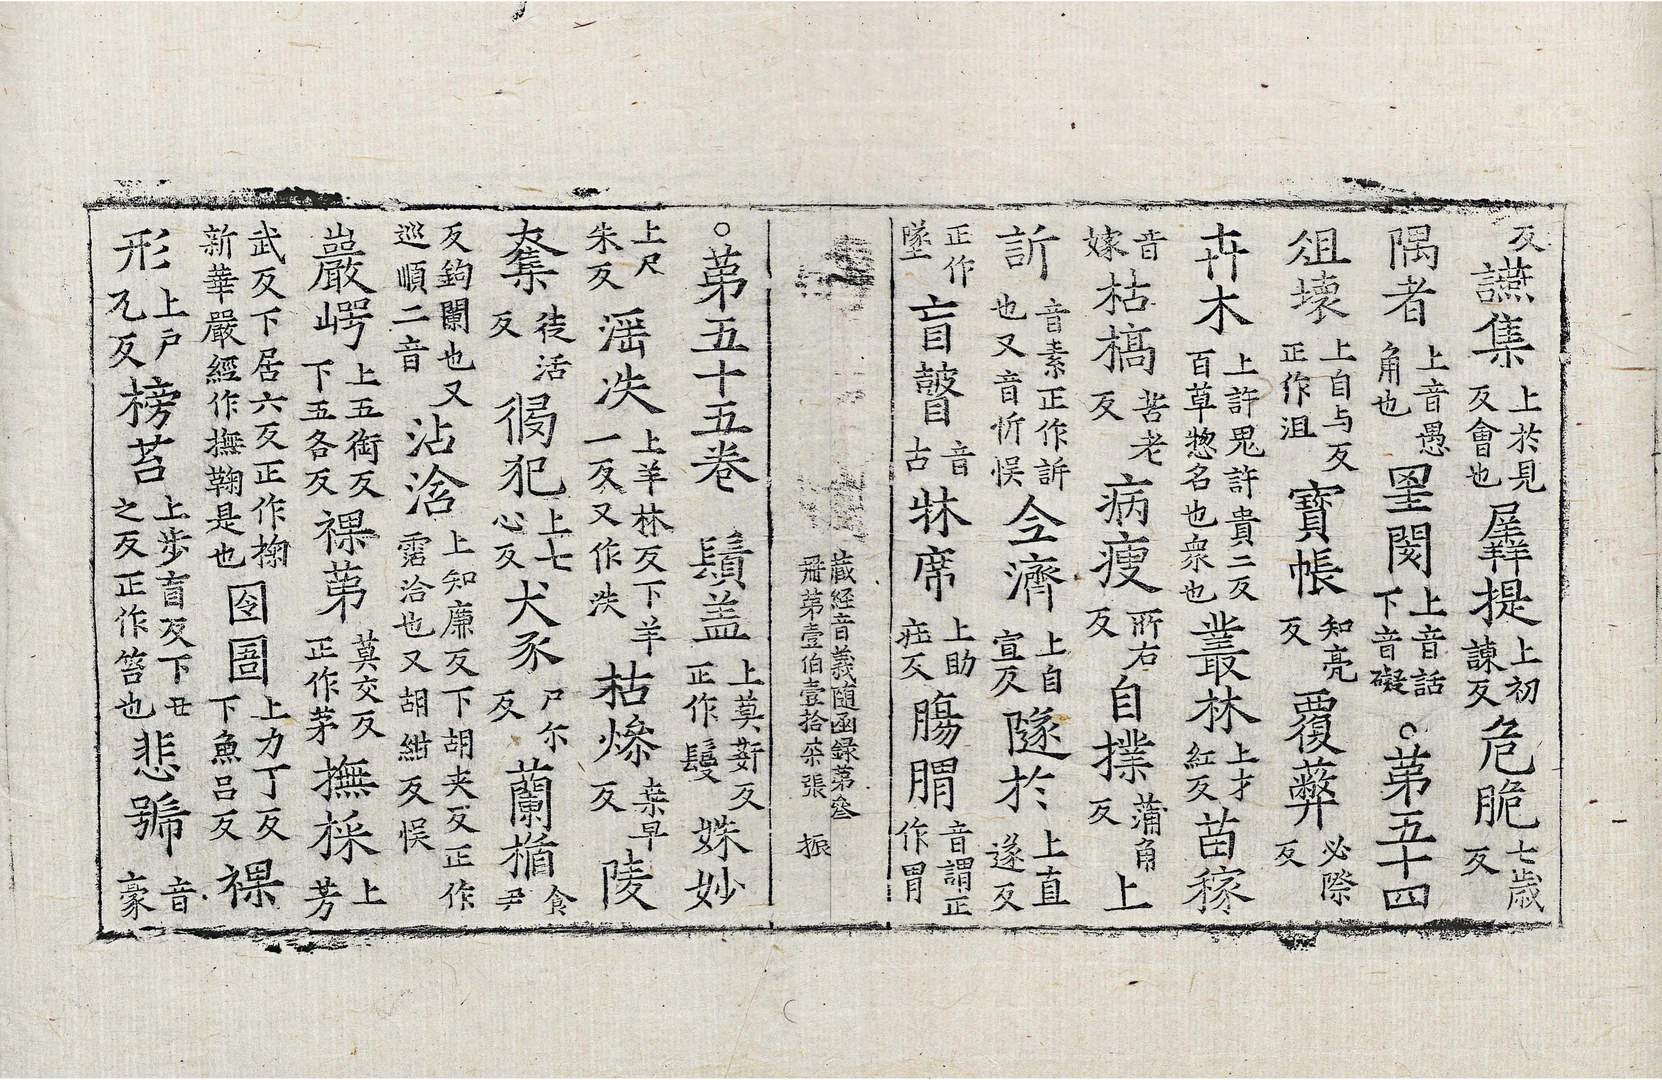 反讌集上於見反會也羼提上初諫反危脆七歲反
隅者上音愚角也罣閡上音話下音礙○苐五十四
俎壞上自与反正作沮寶帳知亮反覆蔽必際反
卉木上許鬼許貴二反百草惣名也衆也叢林上才紅反苗稼
音嫁枯槁苦老反病瘦所右反自撲蒲角反上
訢音素正作訴也又音忻悮仝濟上自宣反隧於上直遂反
正作墜盲瞽音古牀席上助庄反腸㬷音謂正作胃
藏經音義隨函錄苐叄 冊苐壹伯壹拾柒張 振
○苐五十五卷 鬚盖上莫莾反正作鬘姝妙
上尺朱反滛泆上羊林反下羊一反又作泆枯㷶桒早反陵
奪徒活反㣯犯上七心反犬豕尸尔反蘭楯食尹
反鉤闌也又巡順二音沾洽上知廉反下胡夾反正作霑洽也又胡紺反悮
巖崿上五銜反下五各反裸苐莫交反正作茅撫採上芳
武反下居六反正作掬新華嚴經作撫鞠是也囹圄上力丁反下魚吕反裸
形上戶瓦反榜苔上步盲反下丑之反正作笞也悲號音豪